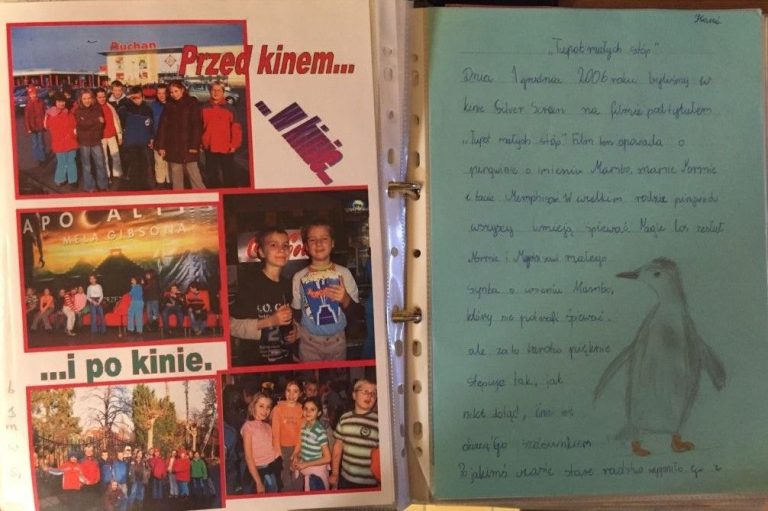 Auchan
Przed kinem...
...w kinie...
APOCALY
MELA GIBSONA
...i po kinie.
Kami
„Tupot małych stóp"
Dnia 1 grudnia 2006 roku byliśmy w
kinie Silver Screen na filmie pod tytułem
„Tupot małych stóp". Film ten opowiada o
pingwinie o imieniu Mambo, mamie Normie
i tacie Memphisie. W wielkim rodzie pingwinów
wszyscy umieją śpiewać. Nagle los zesłał
Normie i małego
synka o imieniu Mambo,
który nie potrafi śpiewać.
ale, za to bardzo pięknie
stepuje tak, jak
nikt dotąd, inni
go
Po jakimś czasie stare radstwo wypniło go z